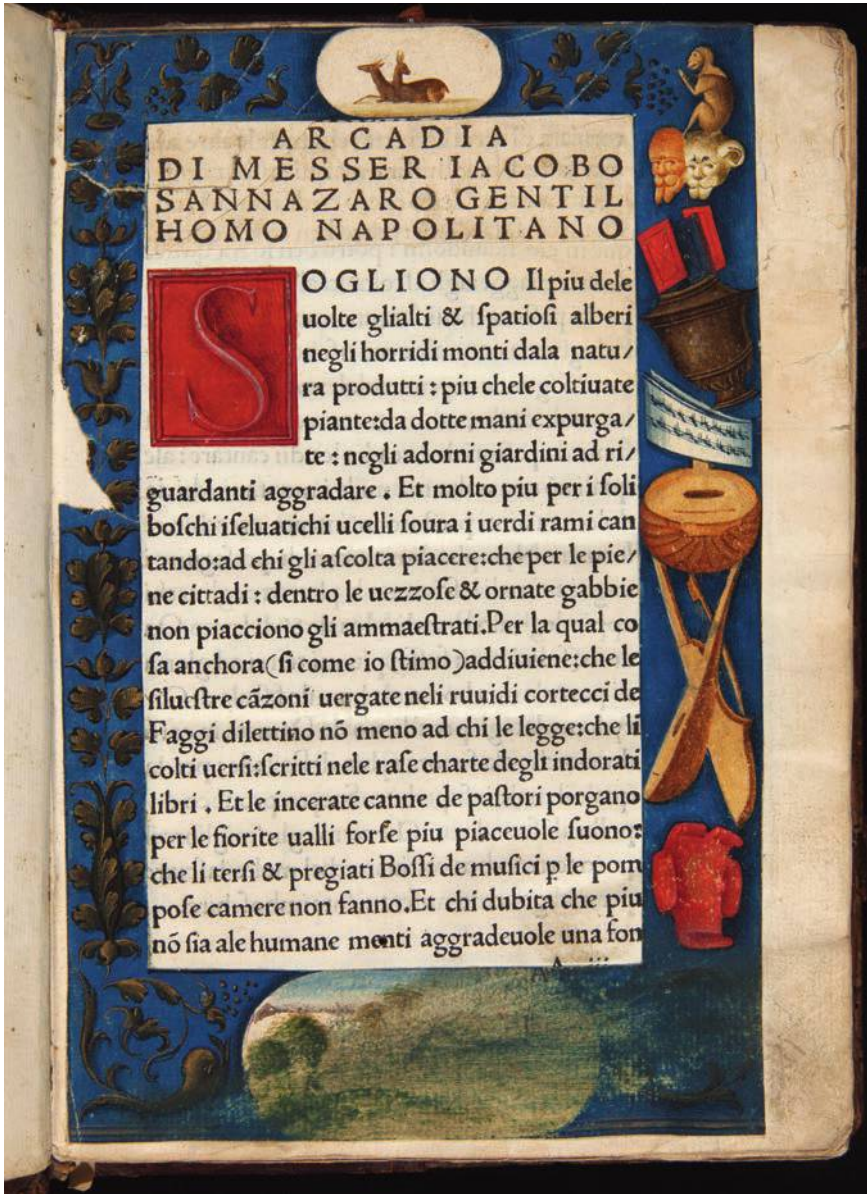 ARCADIA
DI MESSER IACOBO
SANNAZARO GENTIL
HOMO NAPOLITANO
SOGLIONO Il piu dele
uolte glialti & ſpatioſi alberi
negli horridi monti dala natu/
ra produtti : piu chele coltiuate
piante:da dotte mani expurga/
te : negli adorni giardini ad ri/
guardanti aggradare . Et molto piu per i ſoli
boſchi iſeluatichi ucelli ſoura i uerdi rami can
tando:ad chi gli aſcolta piacere:che per le pie/
ne cittadi : dentro le uezzoſe & ornate gabbie
non piacciono gli ammaeſtrati.Per la qual co
ſa anchora(ſi come io ſtimo)addiuiene:che le
ſilueſtre cãzoni uergate neli ruuidi cortecci de
Faggi dilettino nõ meno ad chi le legge:che li
colti uerſi:ſcritti nele raſe charte degli indorati
libri . Et le incerate canne de paſtori porgano
per le fiorite ualli forſe piu piaceuole ſuono:
che li terſi & pregiati Boſſi de muſici ꝑ le pom
poſe camere non fanno.Et chi dubita che piu
nõ ſia ale humane menti aggradeuole una fon